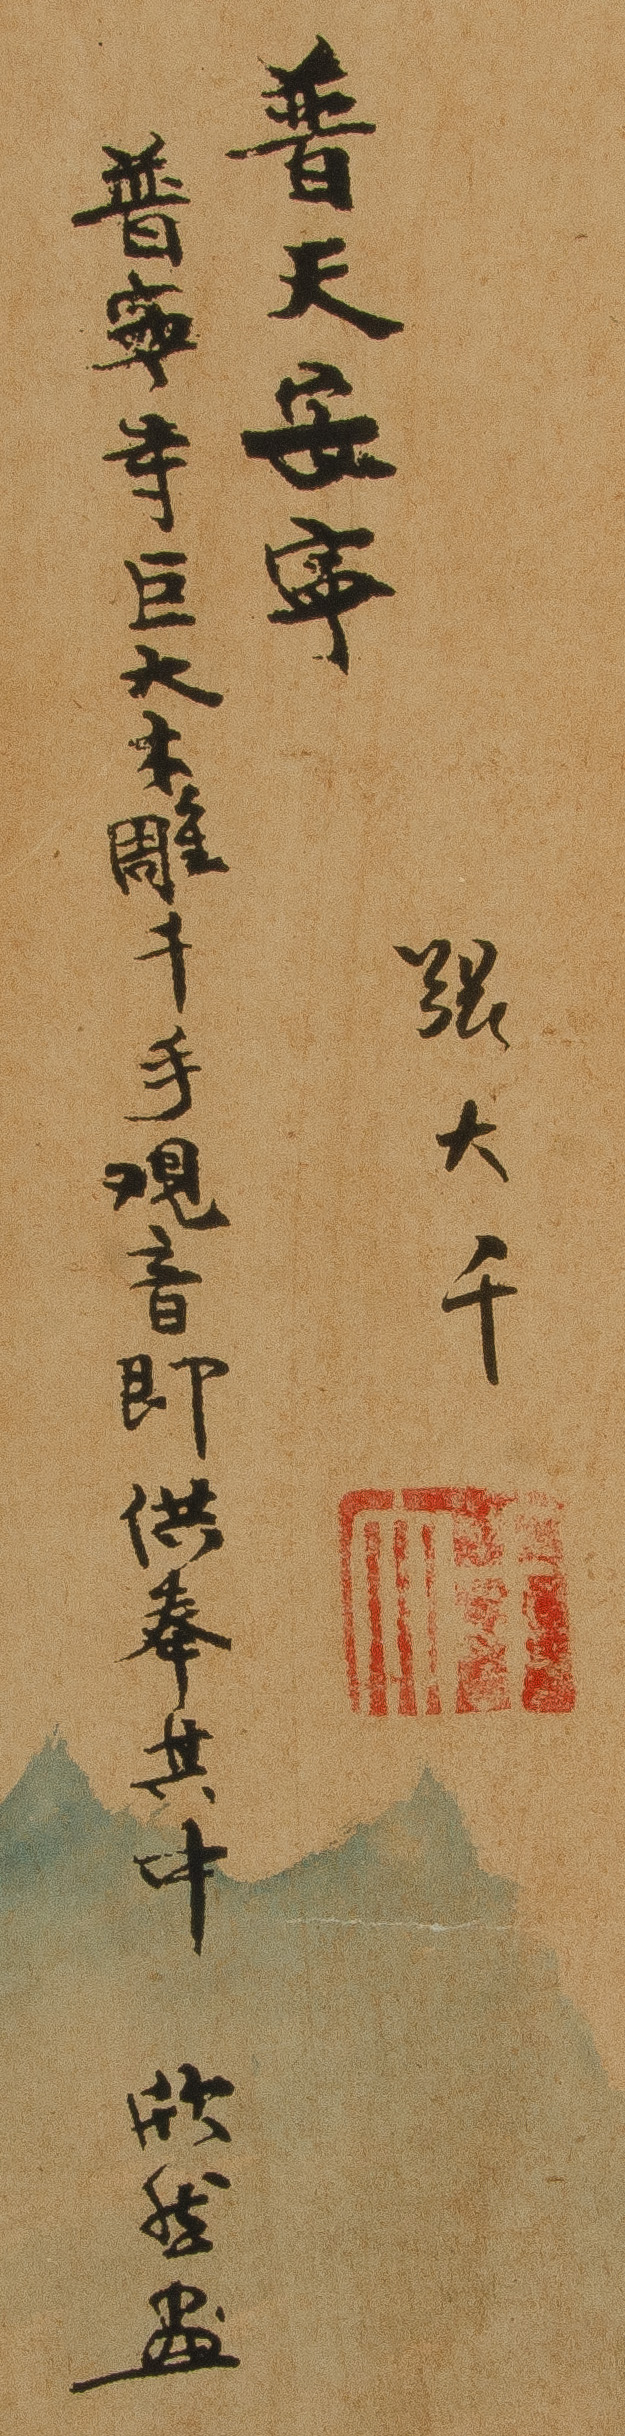 普天安寧
張大千
普寧寺巨大木雕千手观音即供奉其中
欣然畫